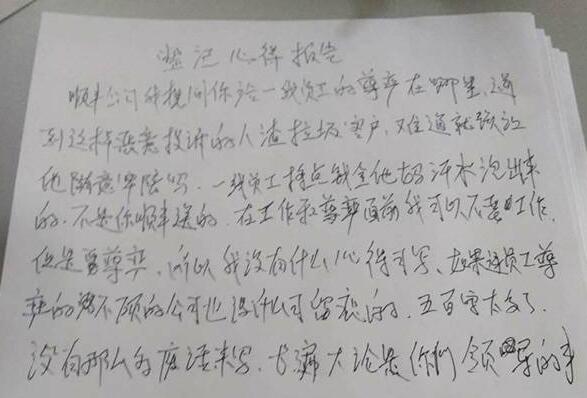 记心得报告
顺丰公司我想问你给一线员工的尊严在哪里,遇
到这样恶意投诉的人渣垃圾客户,难道就该让
他随意陷吗.一线员工挣点钱全他妈汗水泡出来
的.不是你顺丰送的.在工作和尊严面前我可以不要工作.
但是要尊严.所以我没有什么心得可写.如果连员工尊
严的都不顾的公司也没什么可留恋的.五百字太多了.
没有那么多废话来写.长篇大论是你们领导的事